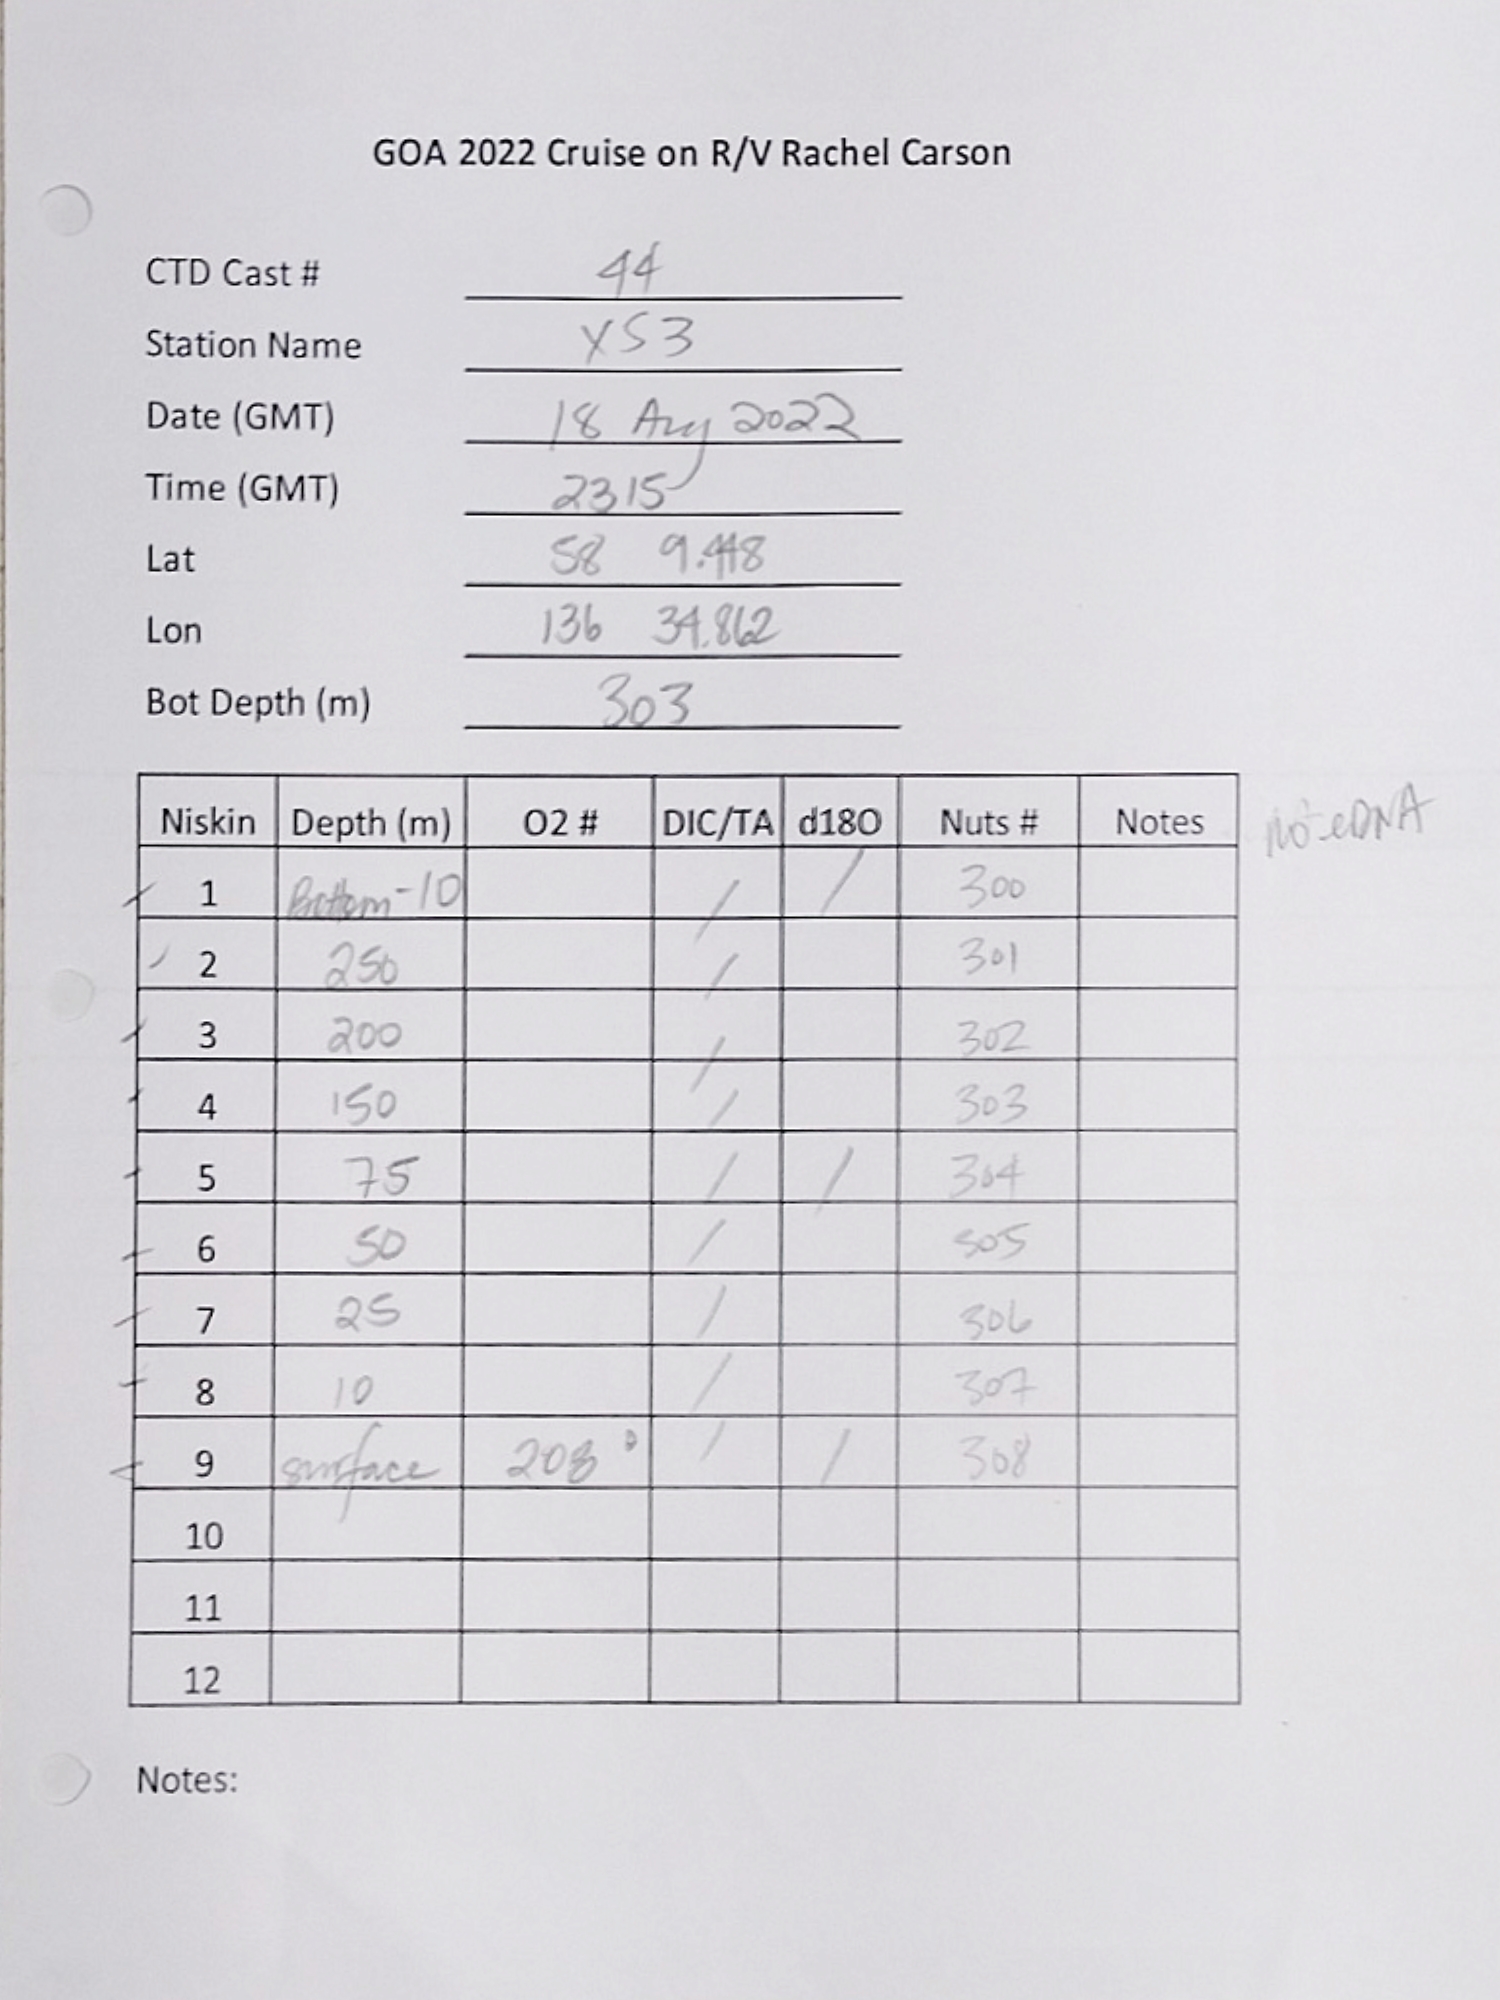 GOA 2022 Cruise on R/V Rachel Carson
CTD Cast # 44
Station Name XS3
Date (GMT) 18 Aug 2022
Time (GMT) 2315
Lat 58 9.448
Lon 136 34.862
Bot Depth (m) 303
Niskin Depth (m) O2 # DIC/TA d18O Nuts # Notes no eDNA
/ 1 Bottom-10 / / 300
/ 2 250 / 301
/ 3 200 / 302
/ 4 150 / 303
/ 5 75 / / 304
/ 6 50 / 305
/ 7 25 / 306
/ 8 10 / 307
/ 9 surface 208 / / 308
10
11
12
Notes: